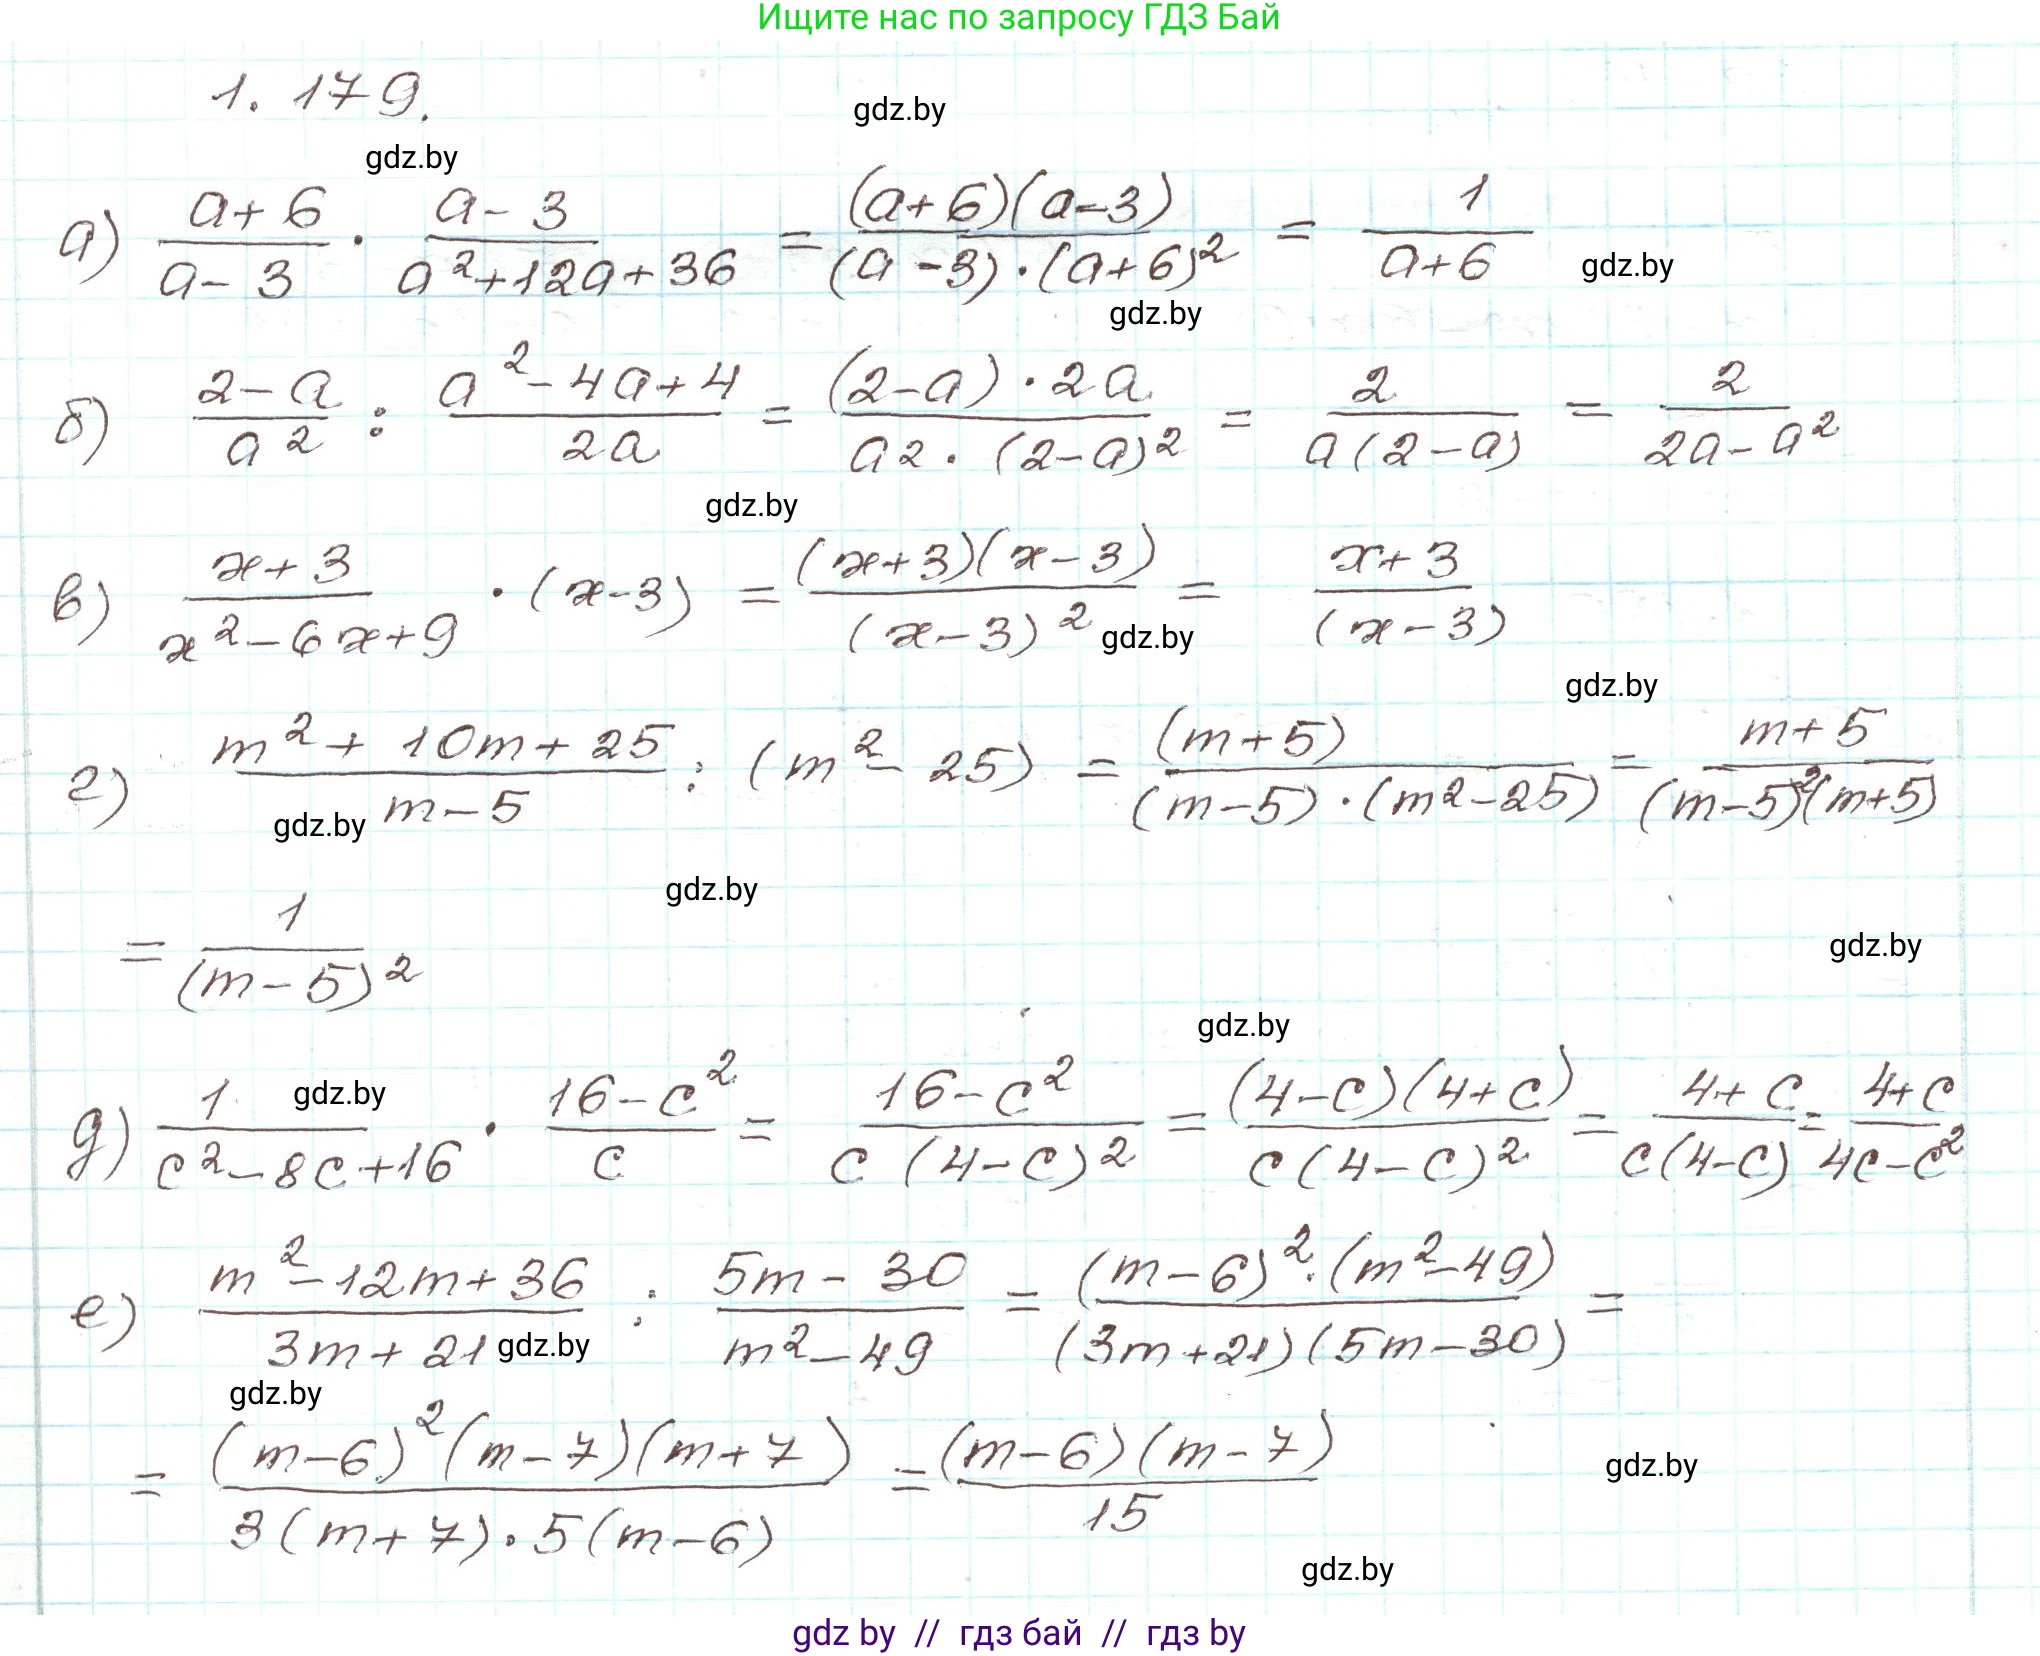 Ищите нас по запросу ГДЗ Бай
1.179.
gdz.by
gdz.by
а) (a+6)/(a-3) · (a-3)/(a²+12a+36) = (a+6)(a-3)/((a-3)·(a+6)²) = 1/(a+6)
gdz.by
gdz.by
б) (2-a)/a² : (a²-4a+4)/2a = (2-a)·2a/(a2·(2-a)²) = 2/(a(2-a)) = 2/(2a-a²)
gdz.by
в) (x+3)/(x²-6x+9) · (x-3) = (x+3)(x-3)/(x-3)² = (x+3)/(x-3)
gdz.by
gdz.by
г) (m²+10m+25)/(m-5) : (m²-25) = (m+5)/((m-5)·(m²-25)) = (m+5)/((m-5)²(m+5))
gdz.by
gdz.by
= 1/(m-5)²
gdz.by
gdz.by
gdz.by
д) 1/(c²-8c+16) · (16-c²)/c = (16-c²)/(c(4-c)²) = (4-c)(4+c)/(c(4-c)²) = (4+c)/(c(4-c)) = (4+c)/(4c-c²)
е) (m²-12m+36)/(3m+21) : (5m-30)/(m²-49) = (m-6)²·(m²-49)/((3m+21)(5m-30)) =
gdz.by
gdz.by
= (m-6)²(m-7)(m+7)/(3(m+7)·5(m-6)) = (m-6)(m-7)/15
gdz.by
gdz.by
gdz by // гдз бай // гдз by